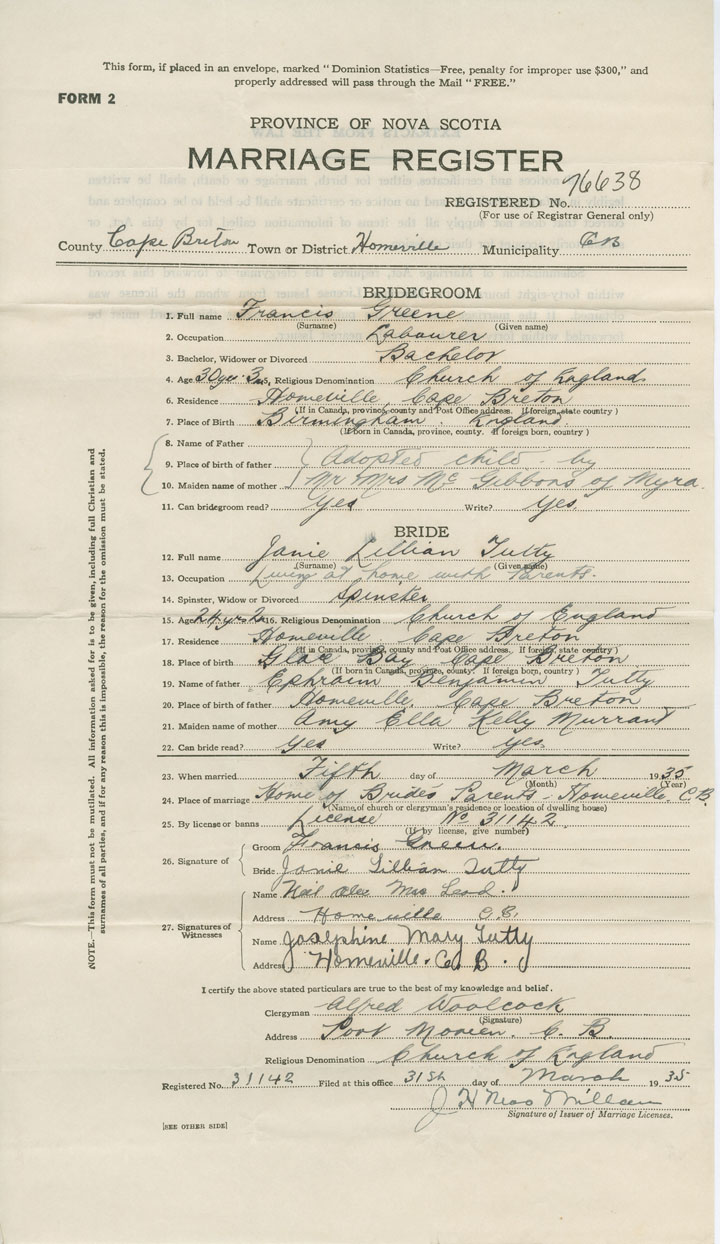 This form, if placed in an envelope, marked " Dominion Statistics—Free, penalty for improper use $300," and
properly addressed will pass through the Mail " FREE."
FORM 2
PROVINCE OF NOVA SCOTIA
MARRIAGE REGISTER
REGISTERED No. 76638
(For use of Registrar General only)
County Cape Breton Town or District Homeville Municipality CB
BRIDEGROOM
1. Full name Francis Greene
(Surname) (Given name)
2. Occupation Labourer
3. Bachelor, Widower or Divorced Bachelor
4. Age 30 yrs 3 5, Religious Denomination Church of England
6. Residence Homeville, Cape Breton
(If in Canada, province, county and Post Office address. If foreign, state country )
7. Place of Birth Birmingham. England.
(If born in Canada, province, county. If foreign born, country )
8. Name of Father
9. Place of birth of father Adopted child by
10. Maiden name of mother Mr Mrs Mc Gibbons of Myra.
11. Can bridegroom read? Yes Write? Yes.
BRIDE
12. Full name Janie Lillian Tutty
(Surname) (Given name)
13. Occupation Living at home with Parents.
14. Spinster, Widow or Divorced Spinster
15. Age 24 yrs 2 16. Religious Denomination Church of England
17. Residence Homeville Cape Breton
(If in Canada, province, county and Post Office address. If foreign, state country )
18. Place of birth Glace Bay, Cape Breton
(If born in Canada, province, county. If foreign born, country )
19. Name of father Ephraim Benjamin Tutty
20. Place of birth of father Homeville, Cape Breton
21. Maiden name of mother Amy Ella Kelly Murrant
22. Can bride read? Yes Write? Yes.
23. When married Fifth day of March 1935
(Month) (Year)
24. Place of marriage Home of Bride's Parents - Homeville, C.B.
(Name of church or clergyman's residence or location of dwelling house)
25. By license or banns License No 31142.
(If by license, give number)
26. Signature of
Groom Francis Greene.
Bride Janie Lillian Tutty
27. Signatures of Witnesses
Name Neil Alex Mac Leod.
Address Homeville C.B.
Name Josephine Mary Tutty
Address Homeville. C. B.
I certify the above stated particulars are true to the best of my knowledge and belief.
Clergyman Alfred Woolcock
(Signature)
Address Port Morien. C. B.
Religious Denomination Church of England
Registered No. 31142 Filed at this office 31st day of March 1935
J H MacMillan
Signature of Issuer of Marriage Licenses.
[SEE OTHER SIDE]
NOTE.—This form must not be mutilated. All information asked for is to be given, including full Christian and
surnames of all parties, and if for any reason this is impossible, the reason for the omission must be stated.